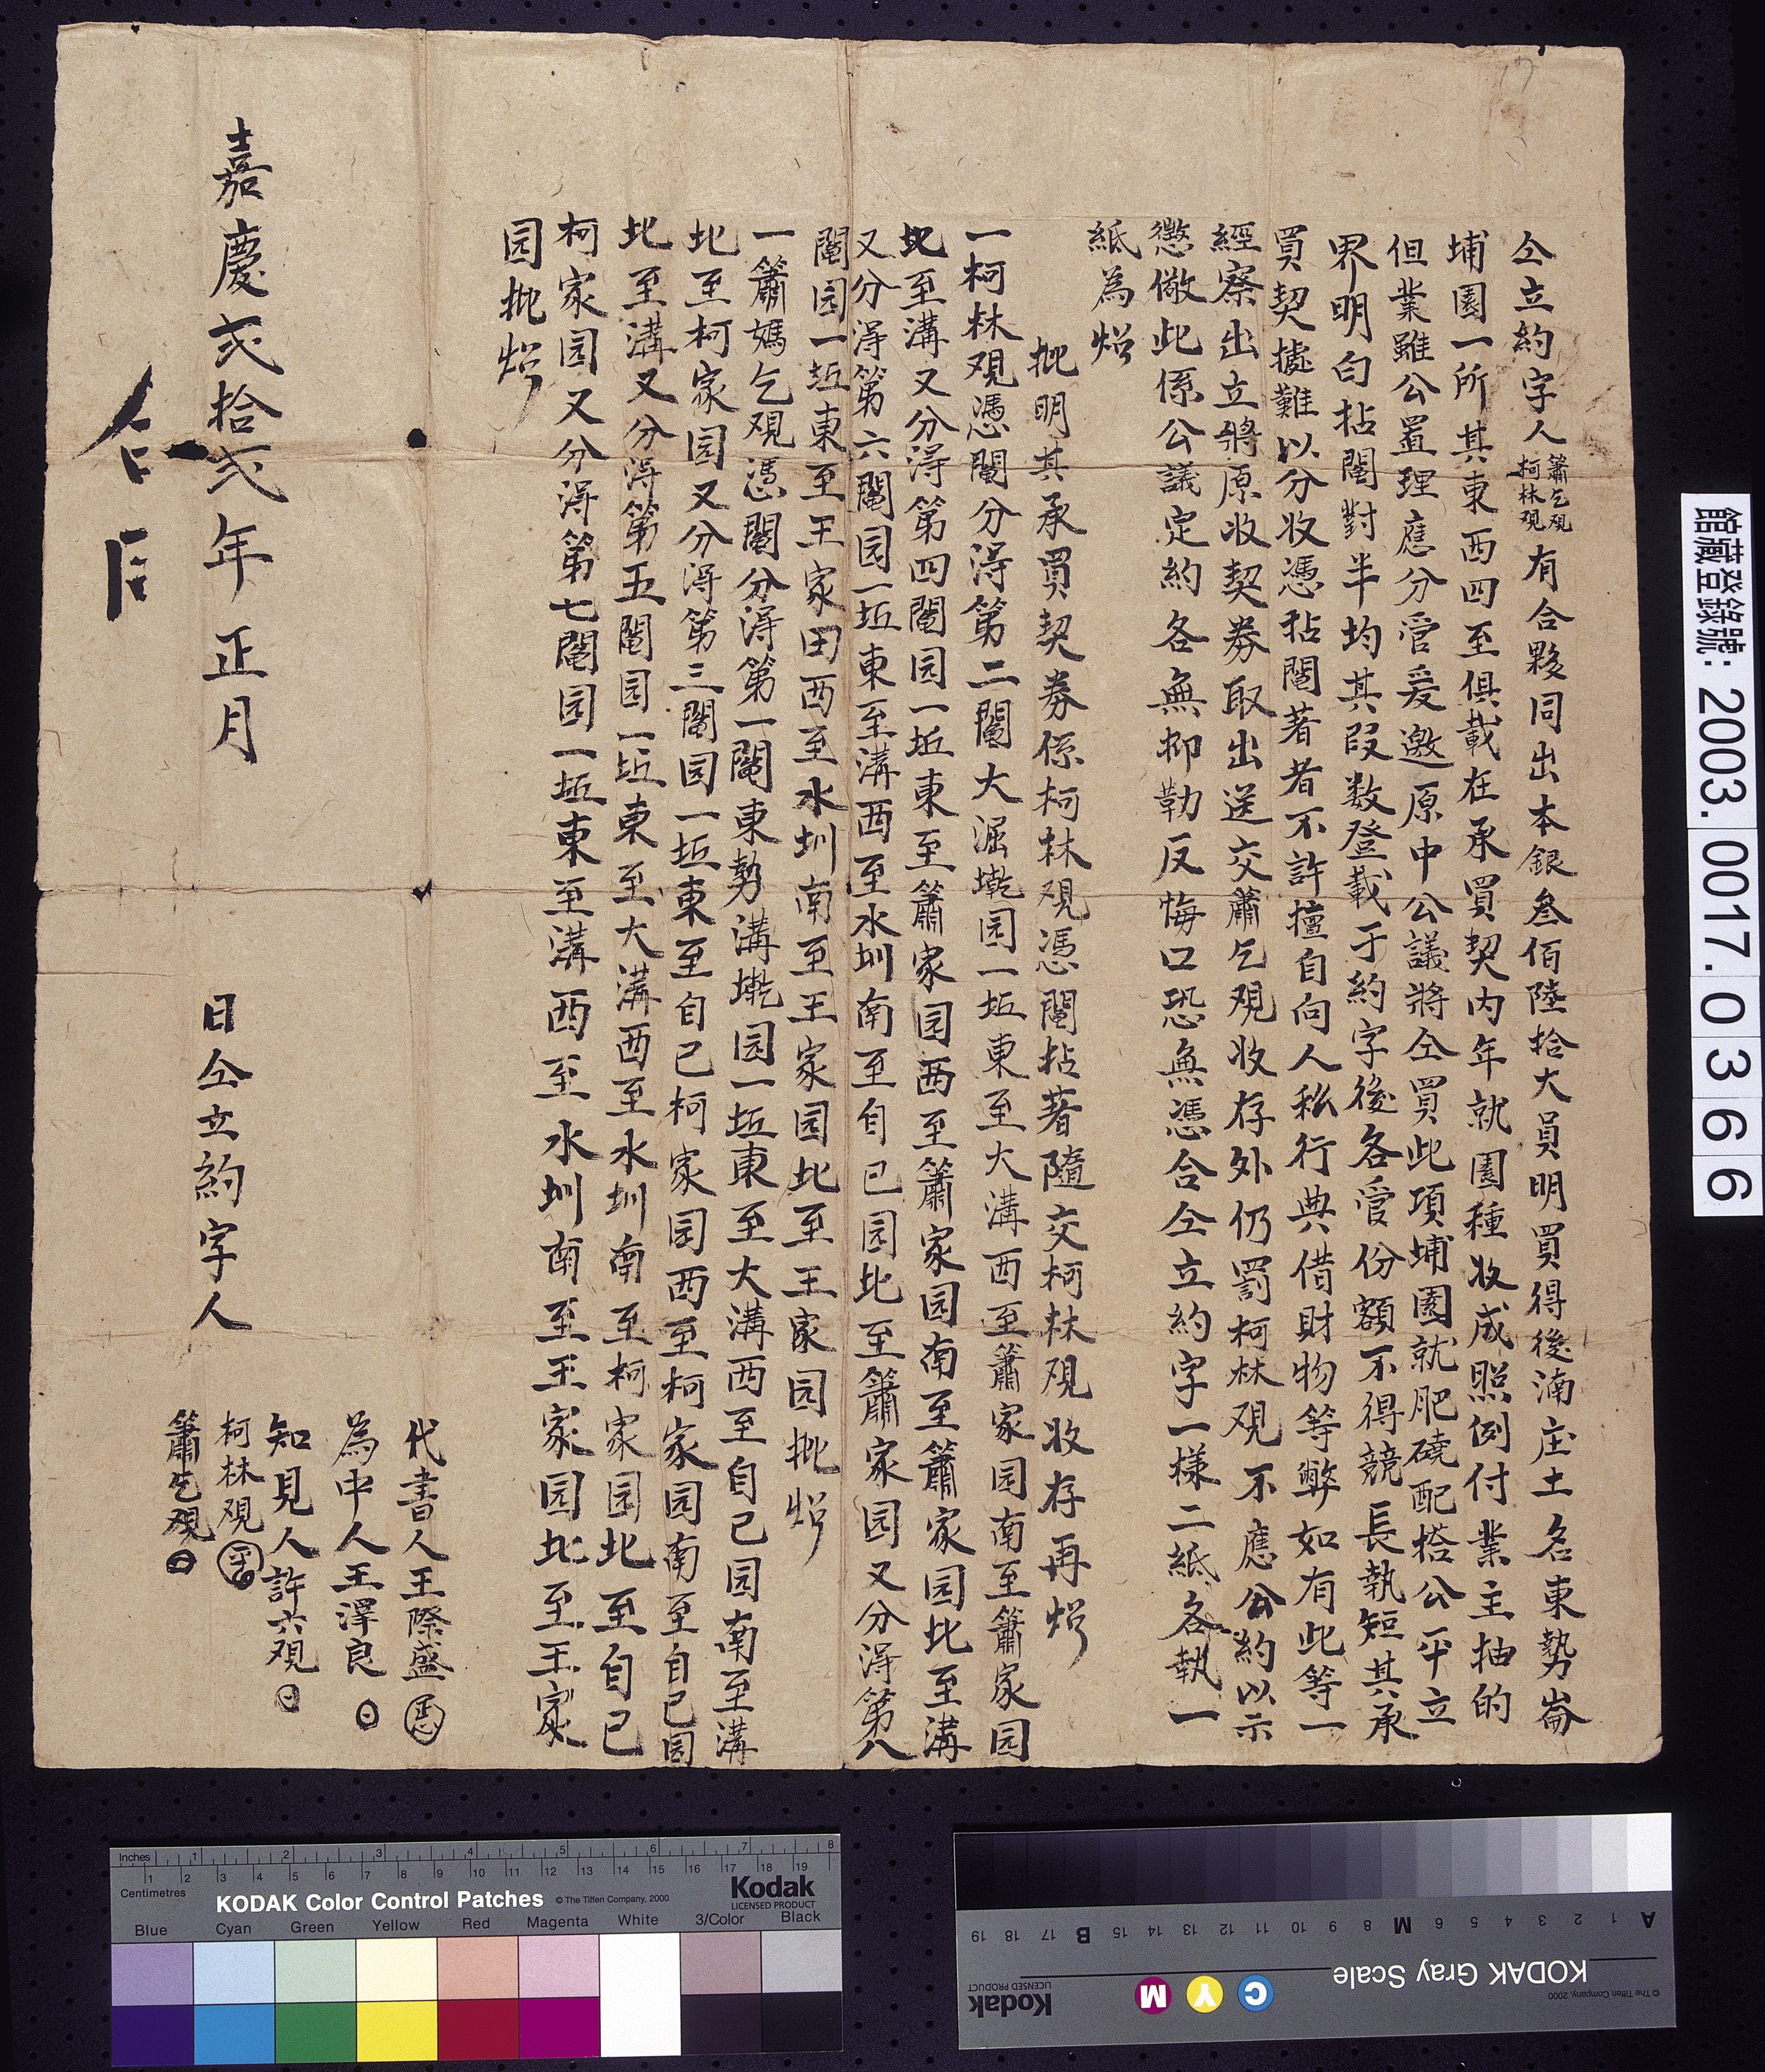 仝立約字人簫乞覌柯林覌有合夥同出本銀叁佰陸拾大員明買得後湳庄土名東勢崙
埔園一所其東西四至俱載在承買契內年就園種收成照例付業主抽的
但業雖公置理應分管爰邀原中公議將仝買此項埔園就肥磽配搭公平立
界明白拈鬮對半均其段数登載于約字後各管份額不得競長執短其承
買契據難以分收憑拈鬮著者不許擅自向人私行典借財物等弊如有此等一
經察出立將原收契券取出送交蕭乞覌收存外仍罰柯林覌不應公約以示
懲儆此係公議定約各無抑勒反悔口恐無憑合仝立約字一樣二紙各執一
紙為炤
批明其承買契券係柯林覌憑鬮拈著隨交柯林覌收存再炤
一柯林覌憑鬮分得第二鬮大溝墘园一坵東至大溝西至簫家园南至簫家园
北至溝又分得第四鬮园一坵東至簫家园西至簫家园南至簫家园北至溝
又分得第六鬮园一坵東至溝西至水圳南至自己园北至簫家园又分得第八
鬮园一坵東至王家田西至水圳南至王家园北至王家园批炤
一簫媽乞覌憑鬮分得第一鬮東勢溝墘园一坵東至大溝西至自己园南至溝
北至柯家园又分得第三鬮园一坵東至自己柯家园西至柯家园南至自己园
北至溝又分得第五鬮园一坵東至大溝西至水圳南至柯家园北至自己
柯家园又分得第七鬮园一坵東至溝西至水圳南至王家园北至王家
园批炤
代書人王際盛
為中人王澤良
知見人許六覌
嘉慶弍拾弍年正月 日仝立約字人
柯林覌
簫乞覌
館藏登錄號: 2003.0017.0366
Inches 1 2 3 4 5 6 7 8
Centimetres 1 2 3 4 5 6 7 8 9 10 11 12 13 14 15 16 17 18 19
KODAK Color Control Patches © The Tiffen Company, 2000
Kodak
LICENSED PRODUCT
Blue Cyan Green Yellow Red Magenta White 3/Color Black
A 1 2 3 4 5 6 M 8 9 10 11 12 13 14 15 B 17 18 19
KODAK Gray Scale
© The Tiffen Company, 2000
C Y M
Kodak
LICENSED PRODUCT